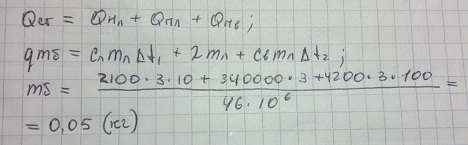 Qсг = Qнл + Qпл + Qнв ;
qmб = cл mл Δt₁ + 2mл + cв mл Δt₂ ;
mб = (2100·3·10 + 340000·3 + 4200·3·100) / (46·10⁶) =
= 0,05 (кг)